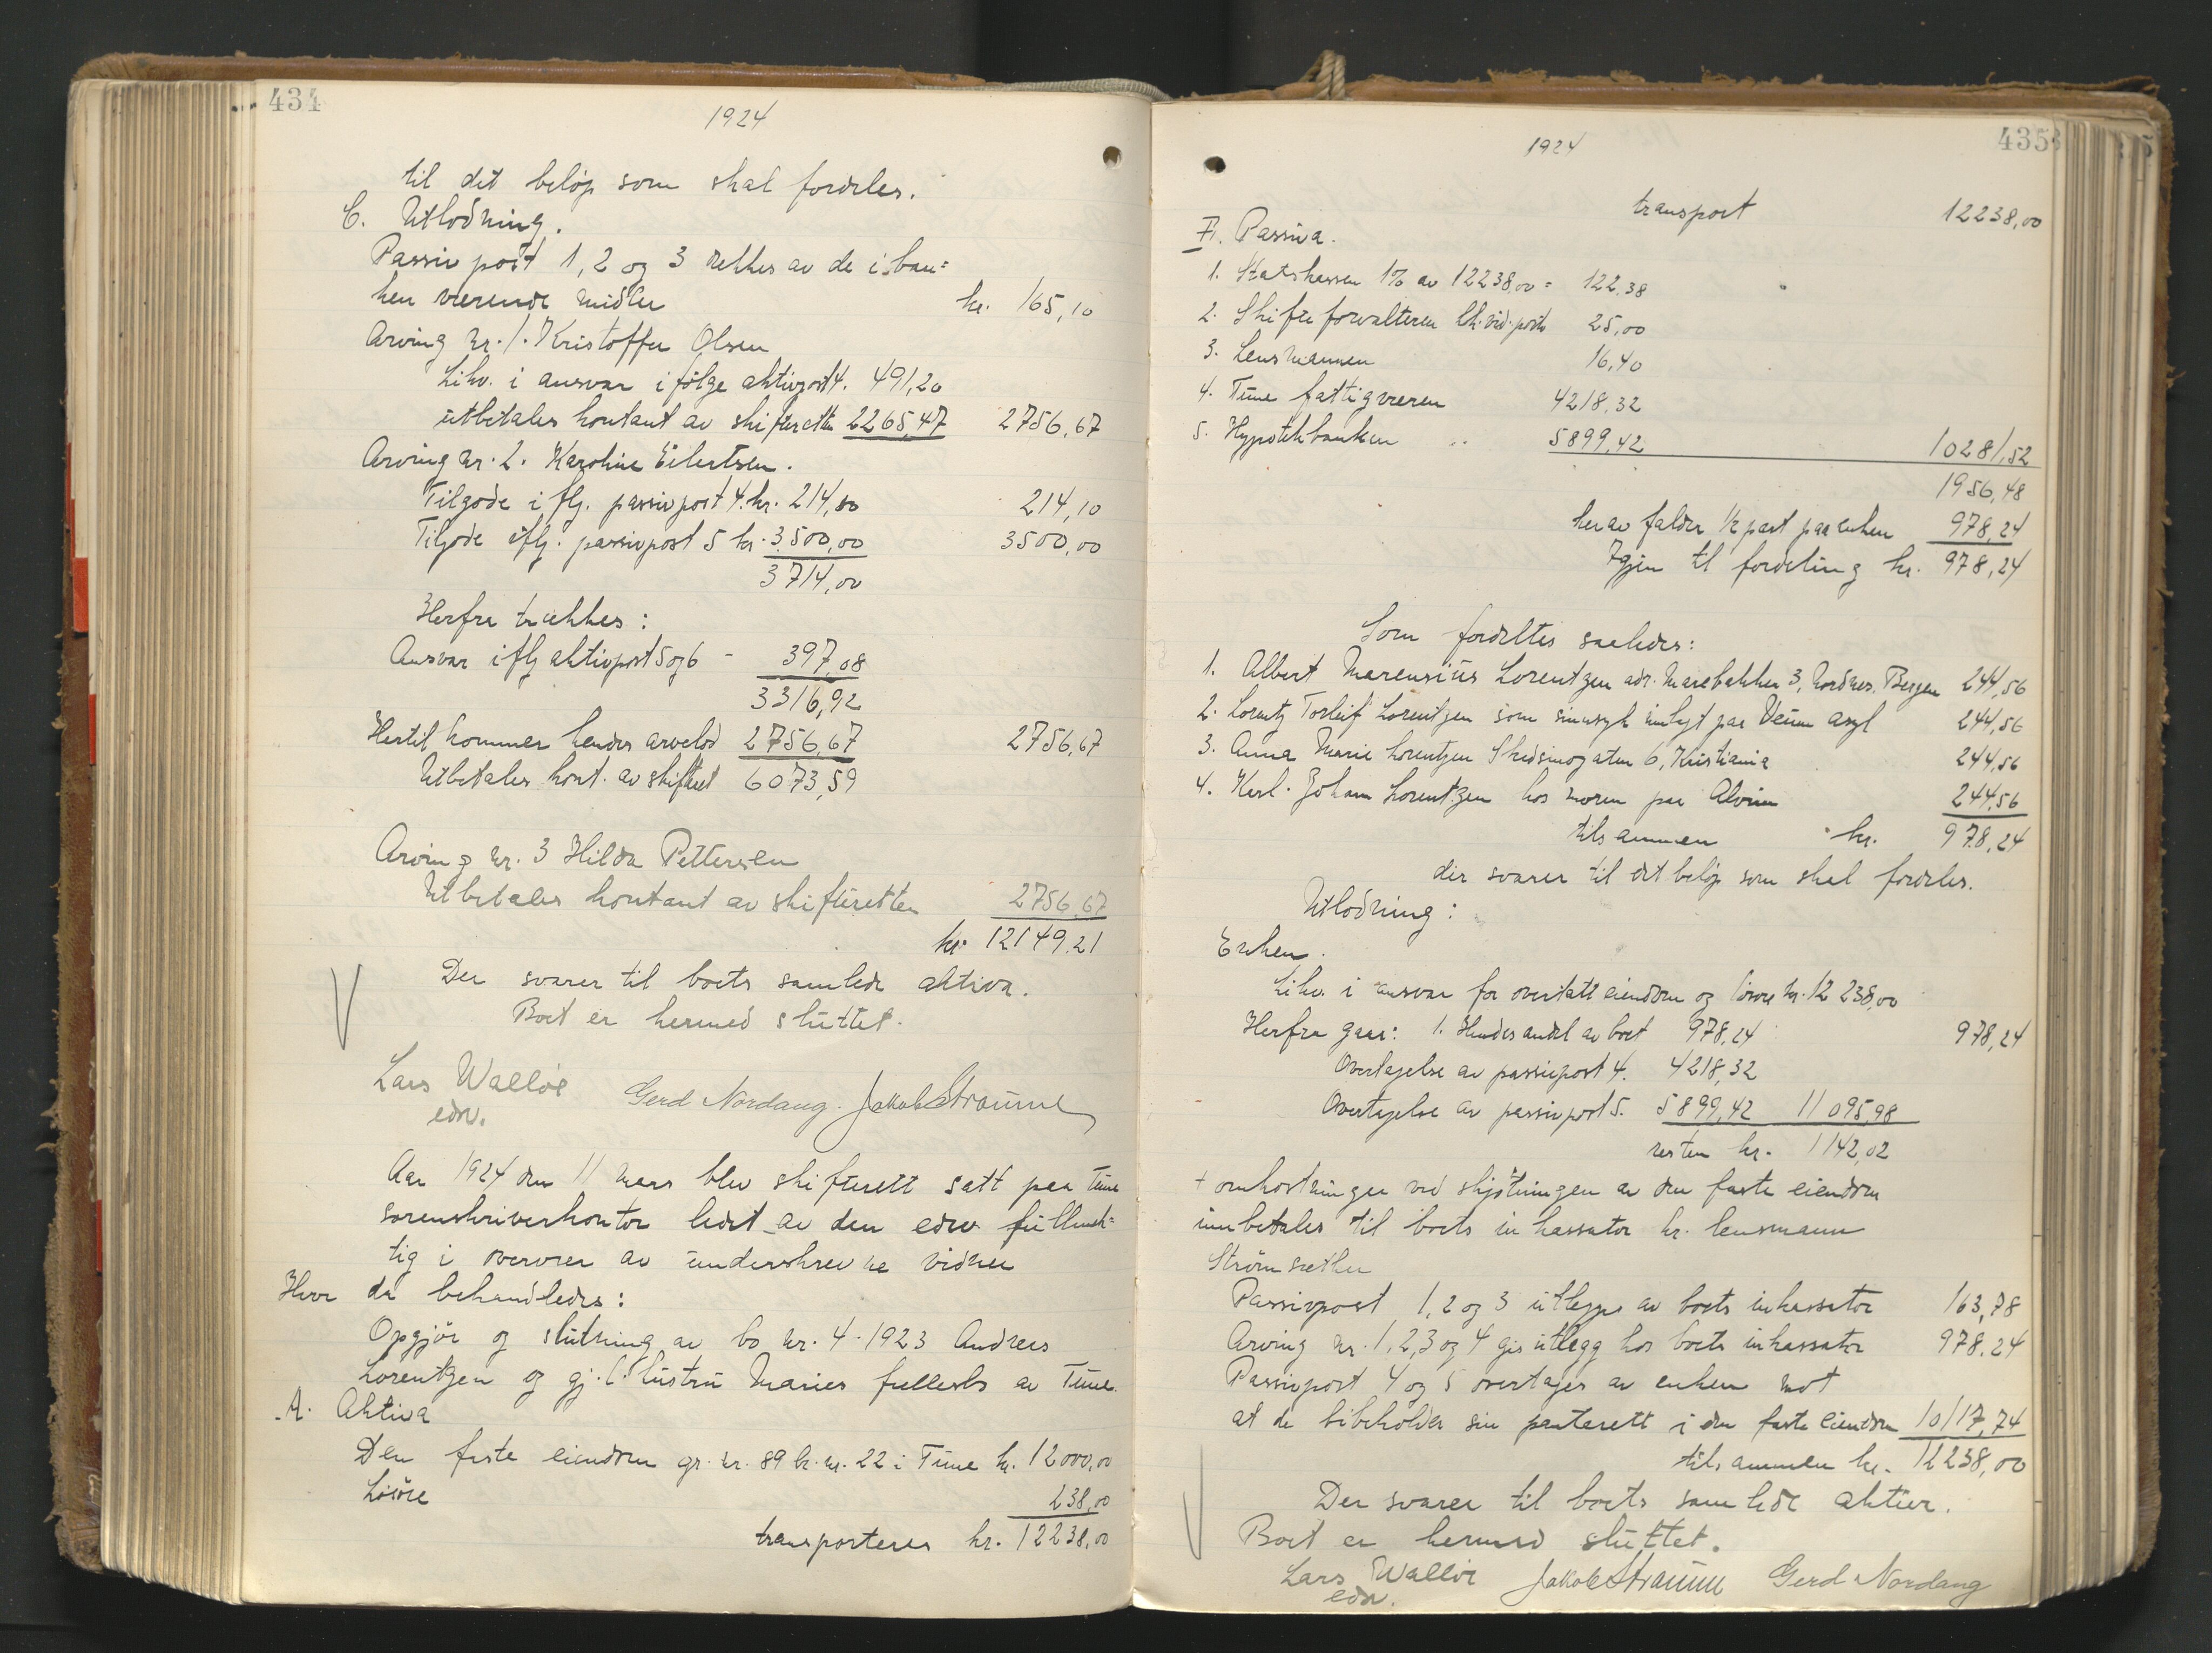 434
1924
til det beløp som skal fordeles.
C. Utlodning.
Passivpost 1, 2 og 3 dekkes av de i ban=
ken værende midler kr. 165,10
Arving nr. 1. Kristoffer Olsen
Likv. i ansvar ifølge aktivpost 4. 491,20
utbetales kontant av skifteretten 2265,47 2756,67
Arving nr. 2. Karoline Eilertsen.
Tilgode iflg. passivpost 4. kr. 214,00 214,10
Tilgode iflg. passivpost 5 kr. 3500,00 3500,00
3714,00
Herfra trækkes:
Ansvar iflg aktivpost 5 og 6 - 397,08
3316,92
Hertil kommer hendes arvelod 2756,67 2756,67
Utbetales kont. av skifteret 6073,59
Arving nr. 3 Hilda Pettersen
Utbetales kontant av skifteretten 2756,67
kr. 12149,21
Der svarer til boets samlede aktiva.
Boet er hermed sluttet.
Lars Walløe Gerd Nordang. Jakob Straume
edsv.
Aar 1924 den 11 mars blev skifterett satt paa Tune
sorenskriverkontor ledet av den edsv fuldmek=
tig i overvær av underskrevne vidner
Hvor da behandledes:
Opgjør og slutning av bo nr. 4 - 1923 Andreas
Lorentzen og gj. l. hustru Maries fellesbo av Tune.
A. Aktiva
Den faste eiendom gr. nr. 89 br. nr. 22 i Tune kr. 12000,00
Løsøre 238,00
transporteres kr. 12238,00
435
1924
transport 12238,00
Passiva.
1. Statskassen 1% av 12238,00 = 122,38
2. Skifteforvalteren 25,00
3. Lensmannen 16,40
4. Tune fattigvesen 4218,32
5. Hypotekbanken .. 5899,42 10281,52
1956,48
herav falder 1/2 part paa enken 978,24
Igjen til fordeling kr. 978,24
Som fordeltes saaledes:
1. Albert Marensius Lorentzen adr. Marebakken 3, Nordnes. Bergen 244,56
2. Lorentz Torleif Lorentzen som sinnsyk innlagt paa Veum asyl 244,56
3. Anna Marie Lorentzen Skedsmogaten 6, Kristiania 244,56
4. Karl Johan Lorentzen hos moren paa Alvim 244,56
tilsammen kr. 978,24
der svarer til det beløp som skal fordeles.
Utlodning:
Enken.
Likv. i ansvar for overtatt eiendom og løsøre kr. 12 238,00
Herfra gaar: 1. Hendes andel av boet 978,24 978,24
Overtagelse av passivpost 4. 4218,32
Overtagelse av passivpost 5. 5899,42 11095,98
resten kr. 1142,02
+ omkostninger ved skjøtningen av den faste eiendom
innbetales til boets inkassator hr. lensmann
Strømsæther
Passivpost 1, 2 og 3 utlegges av boets inkassator 163,78
Arving nr. 1, 2, 3 og 4 gis utlegg hos boets inkassator 978,24
Passivpost 4 og 5 overtages av enken mot
at de bibeholder sin panterett i den faste eiendom 10117,74
tilsammen kr. 12238,00
Der svarer til boets samlede aktiver.
Boet er hermed sluttet.
Lars Walløe Jakob Straume Gerd Nordang
edsv.